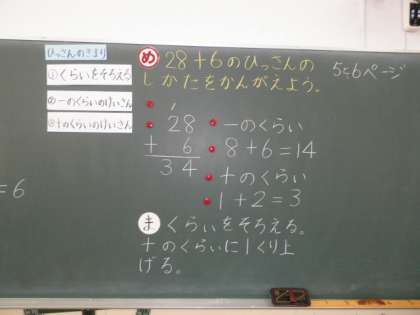 ひっさんのきまり
①くらいをそろえる
②一のくらいのけいさん
③十のくらいのけいさん
め 28+6のひっさんの
しかたをかんがえよう。
28
+ 6
34
一のくらい
8+6=14
十のくらい
1+2=3
ま くらいをそろえる。
十のくらいに1くり上
げる。
5と6ページ
=6